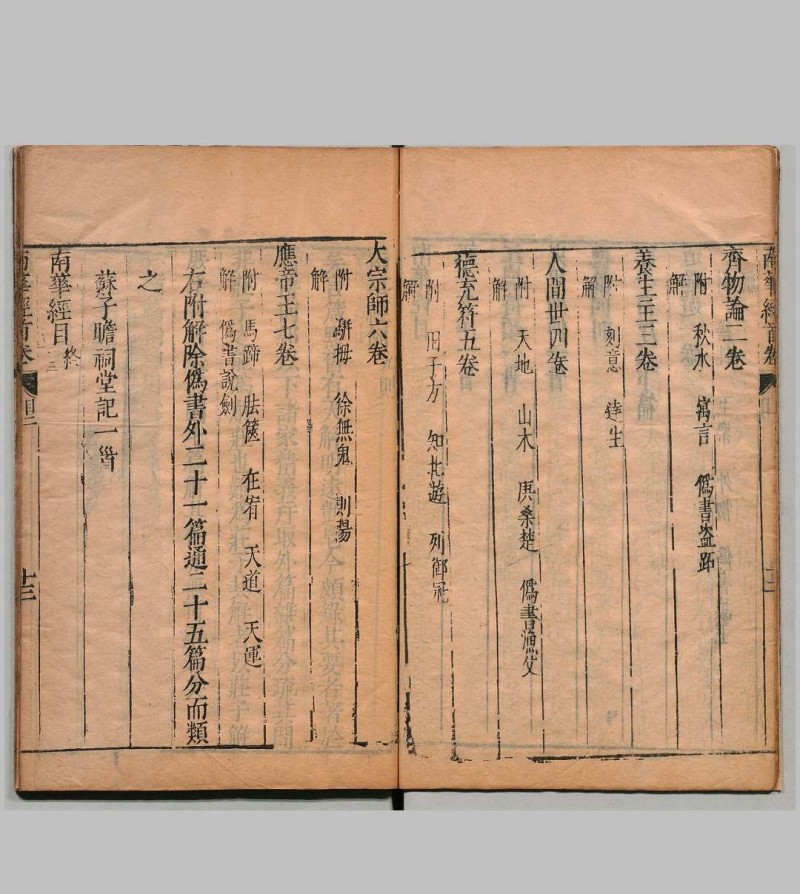 齊物論二卷
附 秋水 寓言 僞書盗跖
解
養生主三卷
附 刻意 達生
解
人間世四卷
附 天地 山木 庚桑楚 僞書漁父
解
德充符五卷
附 田子方 知北遊 列御冦
解
大宗師六卷
附 駢拇 徐無鬼 則陽
解
應帝王七卷
附 馬蹄 胠篋 在宥 天道 天運
解 僞書說劍
右附解除僞書外二十一篇通二十五篇分而類
之
蘇子瞻祠堂記一首
南華經目終
南華經首卷 目 十三